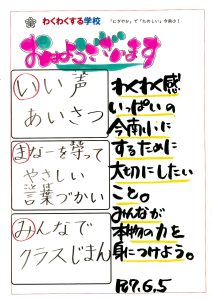 わくわくする学校
「にぎやか」で「たのしい」今南小！
おはようございます
いい声
あいさつ
まなーを守って
やさしい
言葉づかい
みんなで
クラスじまん
わくわく感
いっぱいの
今南小に
するために
大切にしたい
こと。
みんなが
本物の力を
身につけよう。
R7.6.5